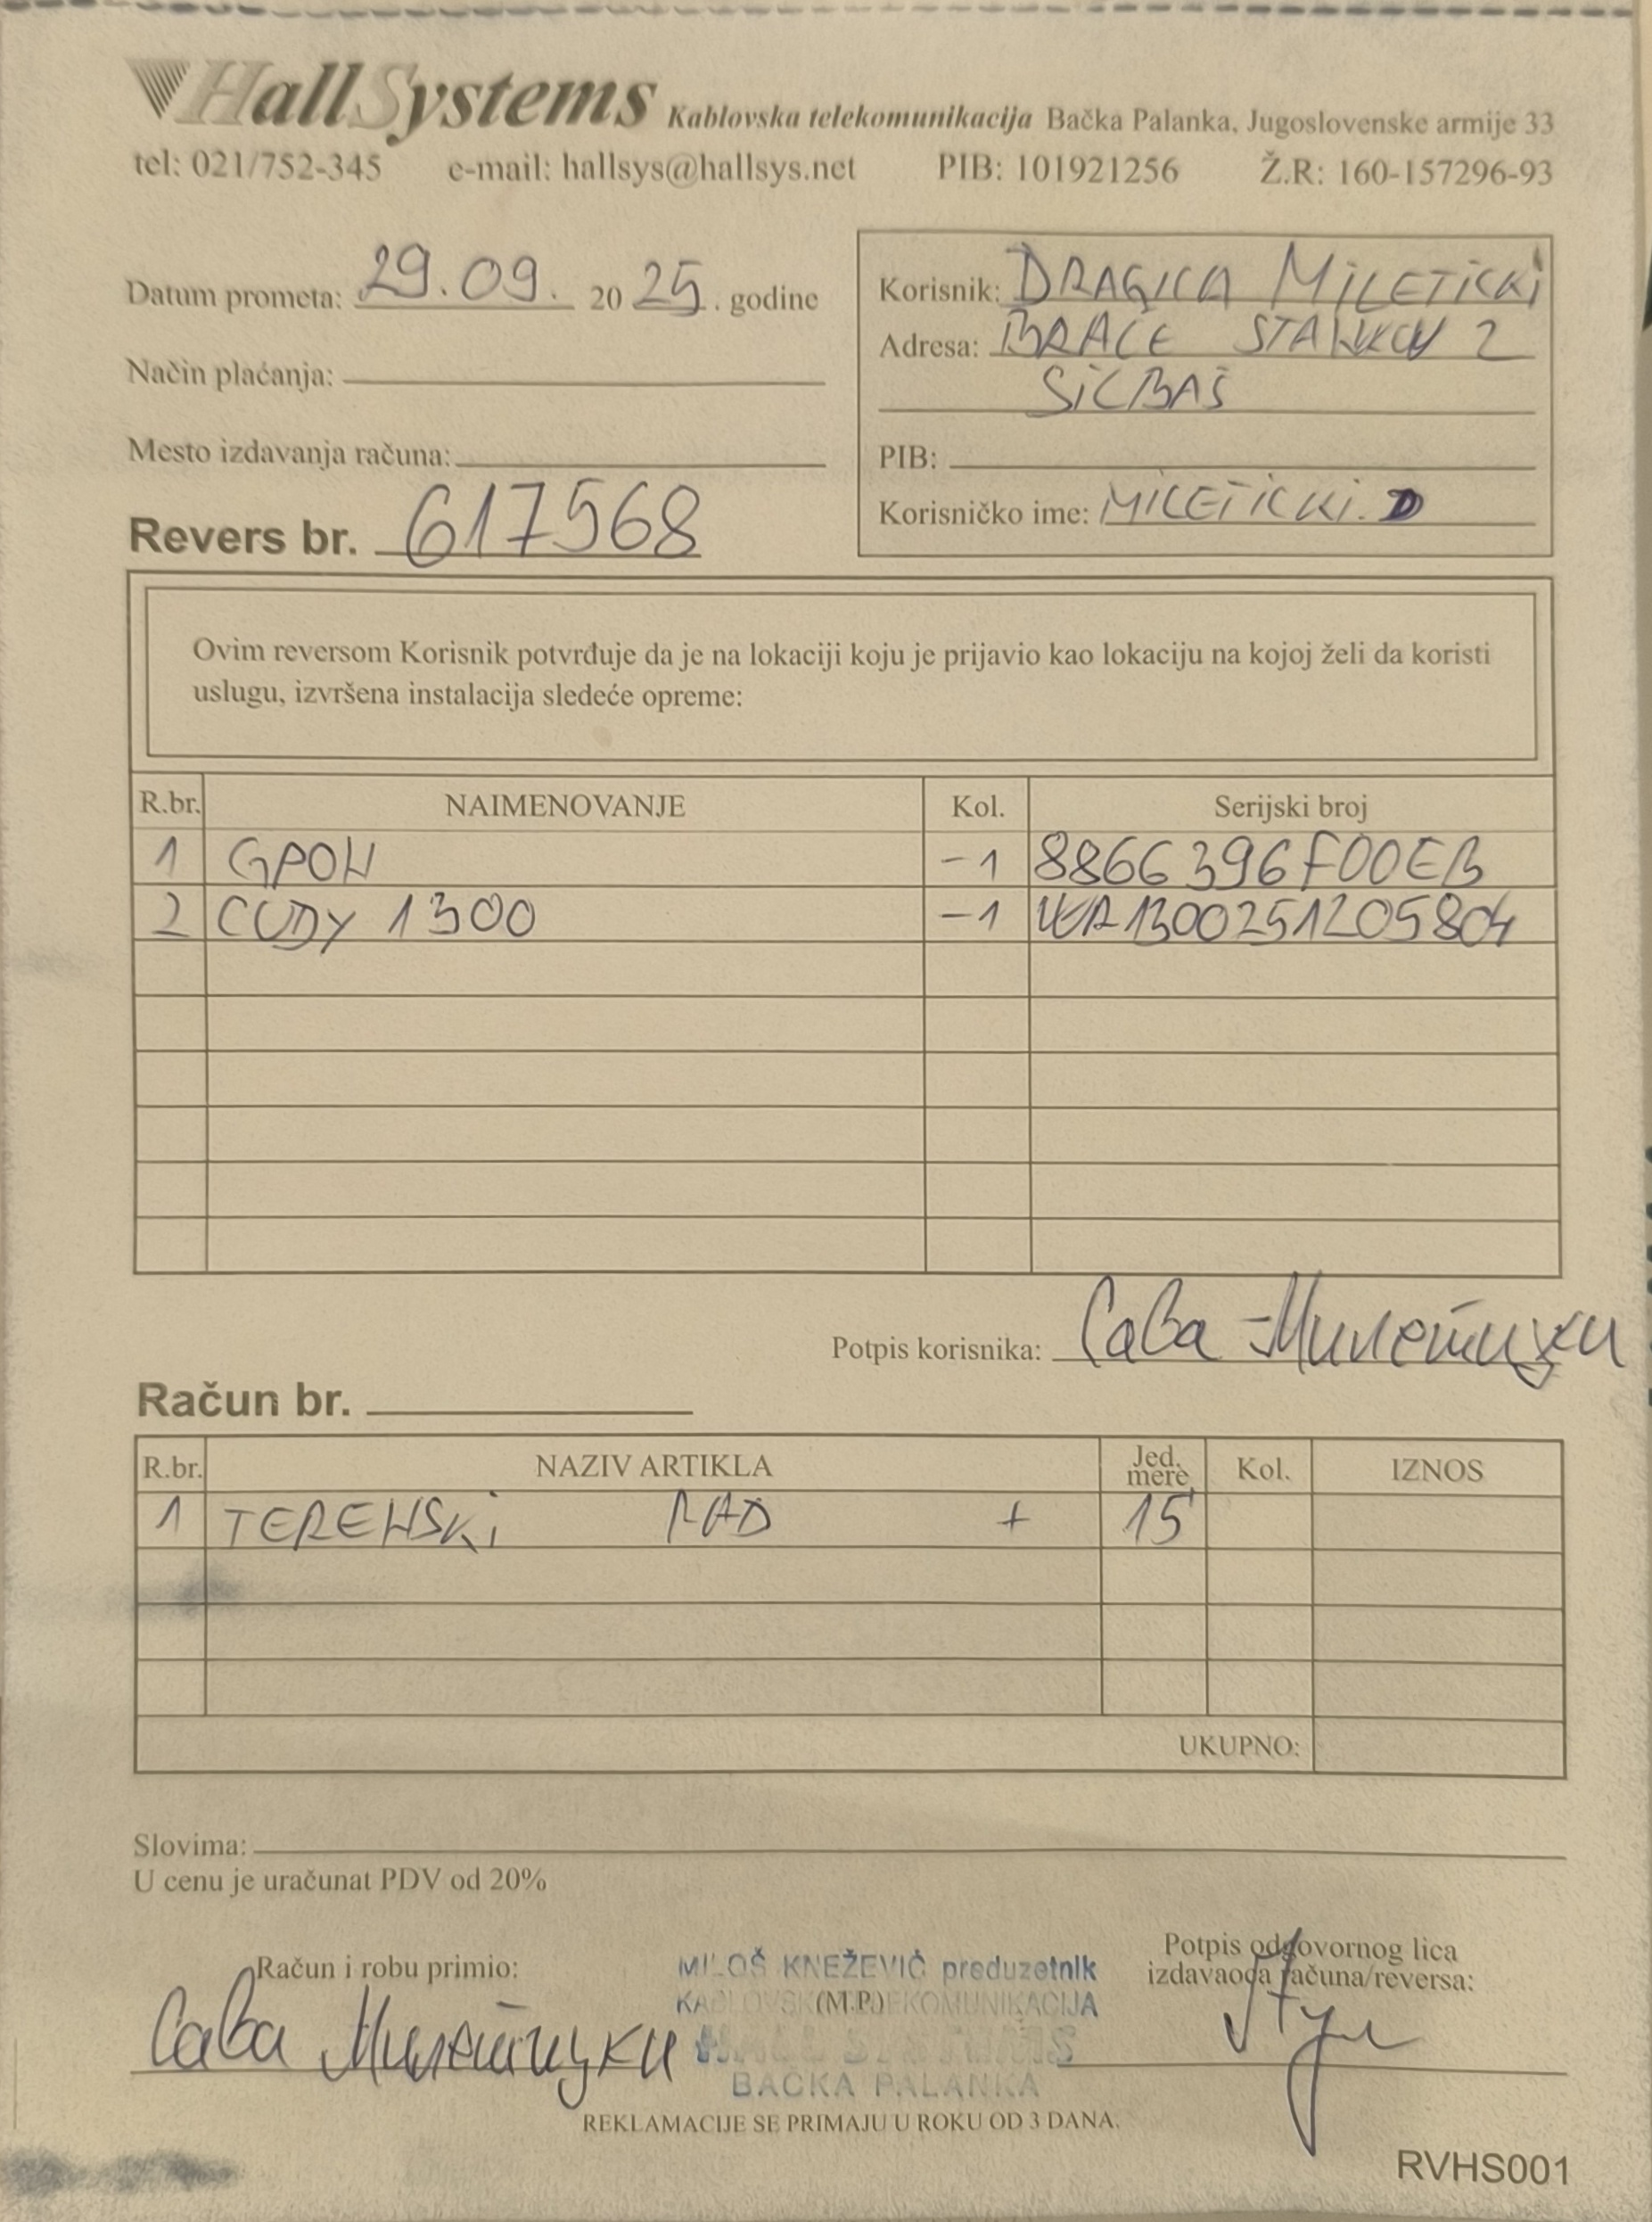 HallSystems Kablovska telekomunikacija Bačka Palanka, Jugoslovenske armije 33
tel: 021/752-345 e-mail: hallsys@hallsys.net PIB: 101921256 Ž.R: 160-157296-93
Datum prometa: 29.09. 2025. godine
Način plaćanja:
Mesto izdavanja računa:
Revers br. 617568
Korisnik: DRAGICA MILETIĆKI
Adresa: BRAĆE 2
SILBAŠ
PIB:
Korisničko ime: MILETICKI.D
Ovim reversom Korisnik potvrđuje da je na lokaciji koju je prijavio kao lokaciju na kojoj želi da koristi
uslugu, izvršena instalacija sledeće opreme:
R.br. NAIMENOVANJE Kol. Serijski broj
1 GPON -1 8866396F00EB
2 CUDY 1300 -1 WR1300251205804
Potpis korisnika: Сава Милетицки
Račun br.
R.br. NAZIV ARTIKLA Jed. mere Kol. IZNOS
1 TERENSKI RAD + 15'
UKUPNO:
Slovima:
U cenu je uračunat PDV od 20%
Račun i robu primio:
Сава Милетицки
MILOŠ KNEŽEVIĆ preduzetnik
KABLOVSKA TELEKOMUNIKACIJA
(M.P.)
HALL SYSTEMS
BAČKA PALANKA
Potpis odgovornog lica
izdavaoca računa/reversa:
REKLAMACIJE SE PRIMAJU U ROKU OD 3 DANA.
RVHS001